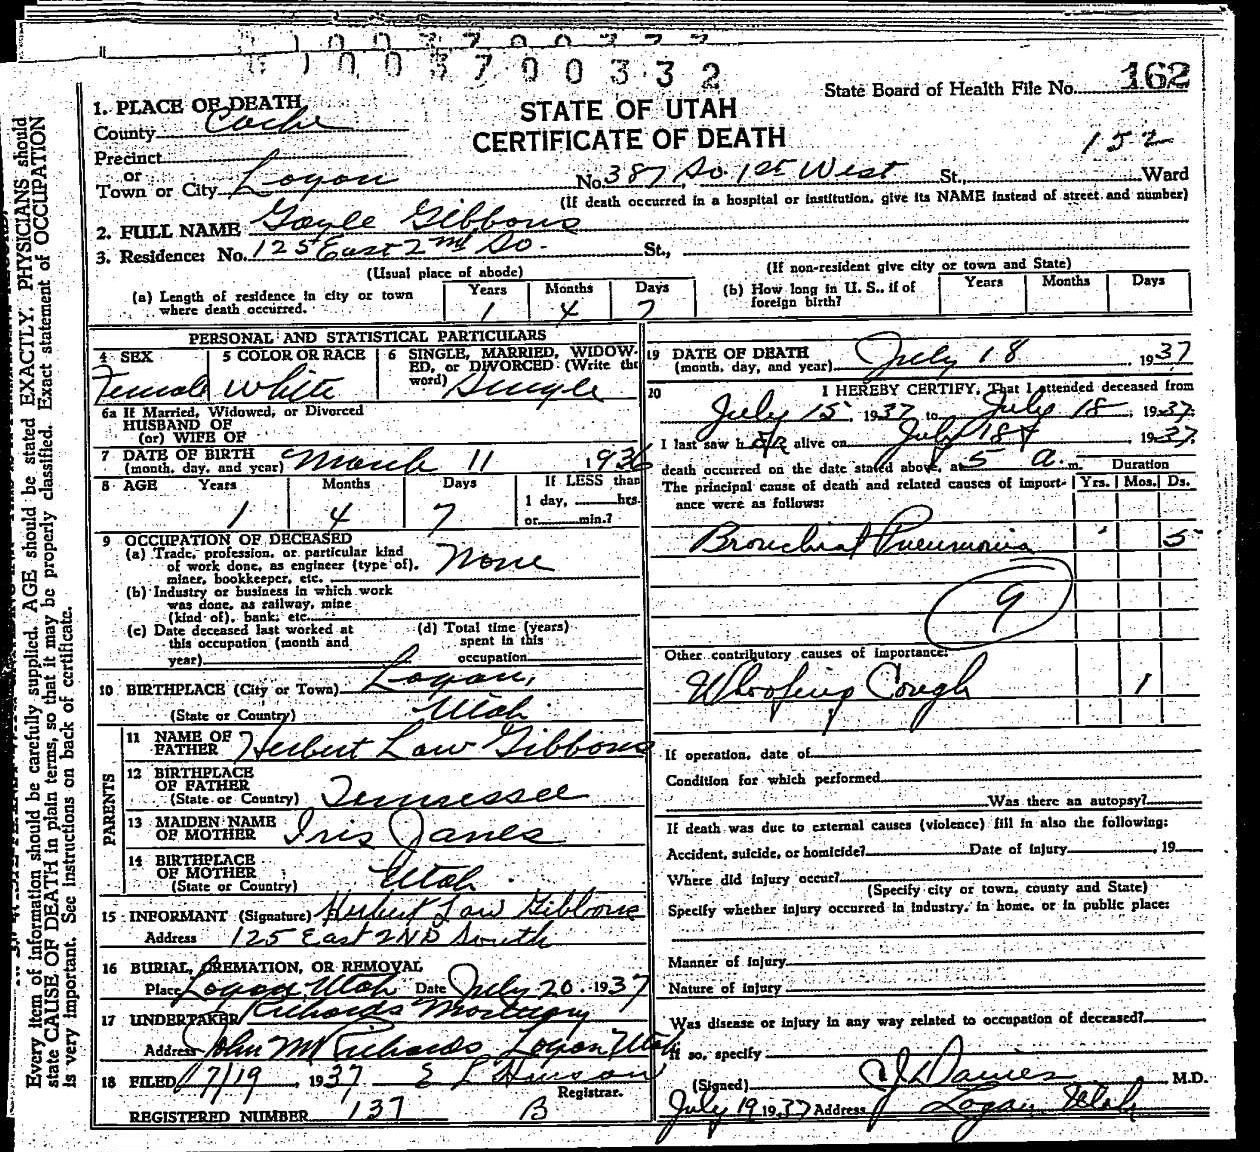 1003700332
State Board of Health File No. 162
STATE OF UTAH
CERTIFICATE OF DEATH
152
1. PLACE OF DEATH
County Cache
Precinct
or
Town or City Logan No. 387 So. 1st West St., Ward
(If death occurred in a hospital or institution, give its NAME instead of street and number)
2. FULL NAME Gayle Gibbons
3. Residence: No. 125 East 2nd So. St.,
(Usual place of abode) (If non-resident give city or town and State)
(a) Length of residence in city or town where death occurred. Years 1 Months 4 Days 7
(b) How long in U. S., if of foreign birth? Years Months Days
PERSONAL AND STATISTICAL PARTICULARS
4 SEX Female
5 COLOR OR RACE White
6 SINGLE, MARRIED, WIDOWED, or DIVORCED (Write the word) Single
6a If Married, Widowed, or Divorced
HUSBAND OF
(or) WIFE OF
7 DATE OF BIRTH
(month, day, and year) March 11 1936
8 AGE Years 1 Months 4 Days 7
If LESS than
1 day, hrs.
or min.?
9 OCCUPATION OF DECEASED
(a) Trade, profession, or particular kind
of work done, as engineer (type of),
miner, bookkeeper, etc. None
(b) Industry or business in which work
was done, as railway, mine
(kind of), bank, etc.
(c) Date deceased last worked at
this occupation (month and
year)
(d) Total time (years)
spent in this
occupation
10 BIRTHPLACE (City or Town) Logan,
(State or Country) Utah
PARENTS
11 NAME OF
FATHER Herbert Law Gibbons
12 BIRTHPLACE
OF FATHER
(State or Country) Tennessee
13 MAIDEN NAME
OF MOTHER Iris Janes
14 BIRTHPLACE
OF MOTHER
(State or Country) Utah
15 INFORMANT (Signature) Herbert Law Gibbons
Address 125 East 2ND South
16 BURIAL, CREMATION, OR REMOVAL
Place Logan, Utah Date July 20, 1937
17 UNDERTAKER Richards Mortuary
Address John M Richards Logan Utah
18 FILED 7/19, 1937 E L Hanson
Registrar.
REGISTERED NUMBER 137 B
19 DATE OF DEATH
(month, day, and year) July 18 1937
20 I HEREBY CERTIFY, That I attended deceased from
July 15, 1937 to July 18, 1937
I last saw h er alive on July 18 1937
death occurred on the date stated above, at 5 a. m.
Duration
The principal cause of death and related causes of importance were as follows: Yrs. Mos. Ds.
Bronchial Pneumonia 5
9
Other contributory causes of importance:
Whooping Cough 1
If operation, date of
Condition for which performed
Was there an autopsy?
If death was due to external causes (violence) fill in also the following:
Accident, suicide, or homicide? Date of injury , 19
Where did injury occur?
(Specify city or town, county and State)
Specify whether injury occurred in industry, in home, or in public place:
Manner of injury
Nature of injury
Was disease or injury in any way related to occupation of deceased?
If so, specify
(Signed) Davies M.D.
July 19 1937 Address Logan Utah
Every item of information should be carefully supplied. AGE should be stated EXACTLY. PHYSICIANS should
state CAUSE OF DEATH in plain terms, so that it may be properly classified. Exact statement of OCCUPATION
is very important. See instructions on back of certificate.